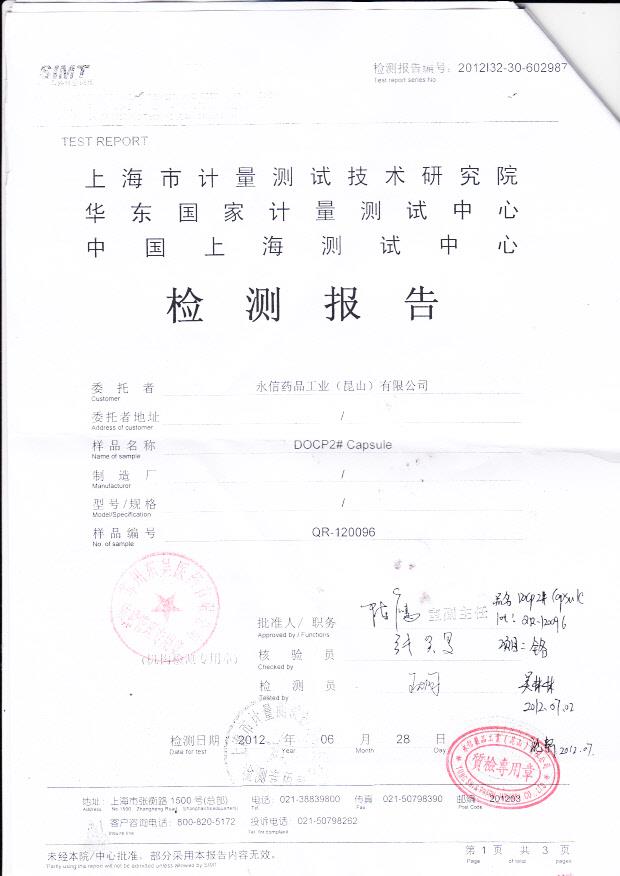 SIMT
检测报告编号: 2012I32-30-602987
Test report series No
TEST REPORT
上海市计量测试技术研究院
华东国家计量测试中心
中国上海测试中心
检测报告
委托者 永信药品工业（昆山）有限公司
Customer
委托者地址 /
Address of customer
样品名称 DOCP2# Capsule
Name of sample
制造厂 /
Manufacturor
型号/规格 /
Model/Specification
样品编号 QR-120096
No. of sample
品名 DOCP2# Capsule
批准人/ 职务 室副主任
Approved by / Functions
lot: QR-120096
核验员
Checked by
检测员
Tested by
2012.07.02
检测日期 2012 年 06 月 28 日
Date for test Year Month Day
2012.07.
質檢專用章
地址: 上海市张衡路 1500 号(总部) 电话: 021-38839800 传真 021-50798390 邮编 201203
Address No.1500 Zhangheng Road, Shanghai(headquarters) Tel. Fax Post Code
客户咨询电话: 800-820-5172 投诉电话: 021-50798262
Inquire line Tel. for complaint
未经本院/中心批准，部分采用本报告内容无效。
Partly using this report will not be admitted unless allowed by SIMT
第 1 页 共 3 页
Page of total pages